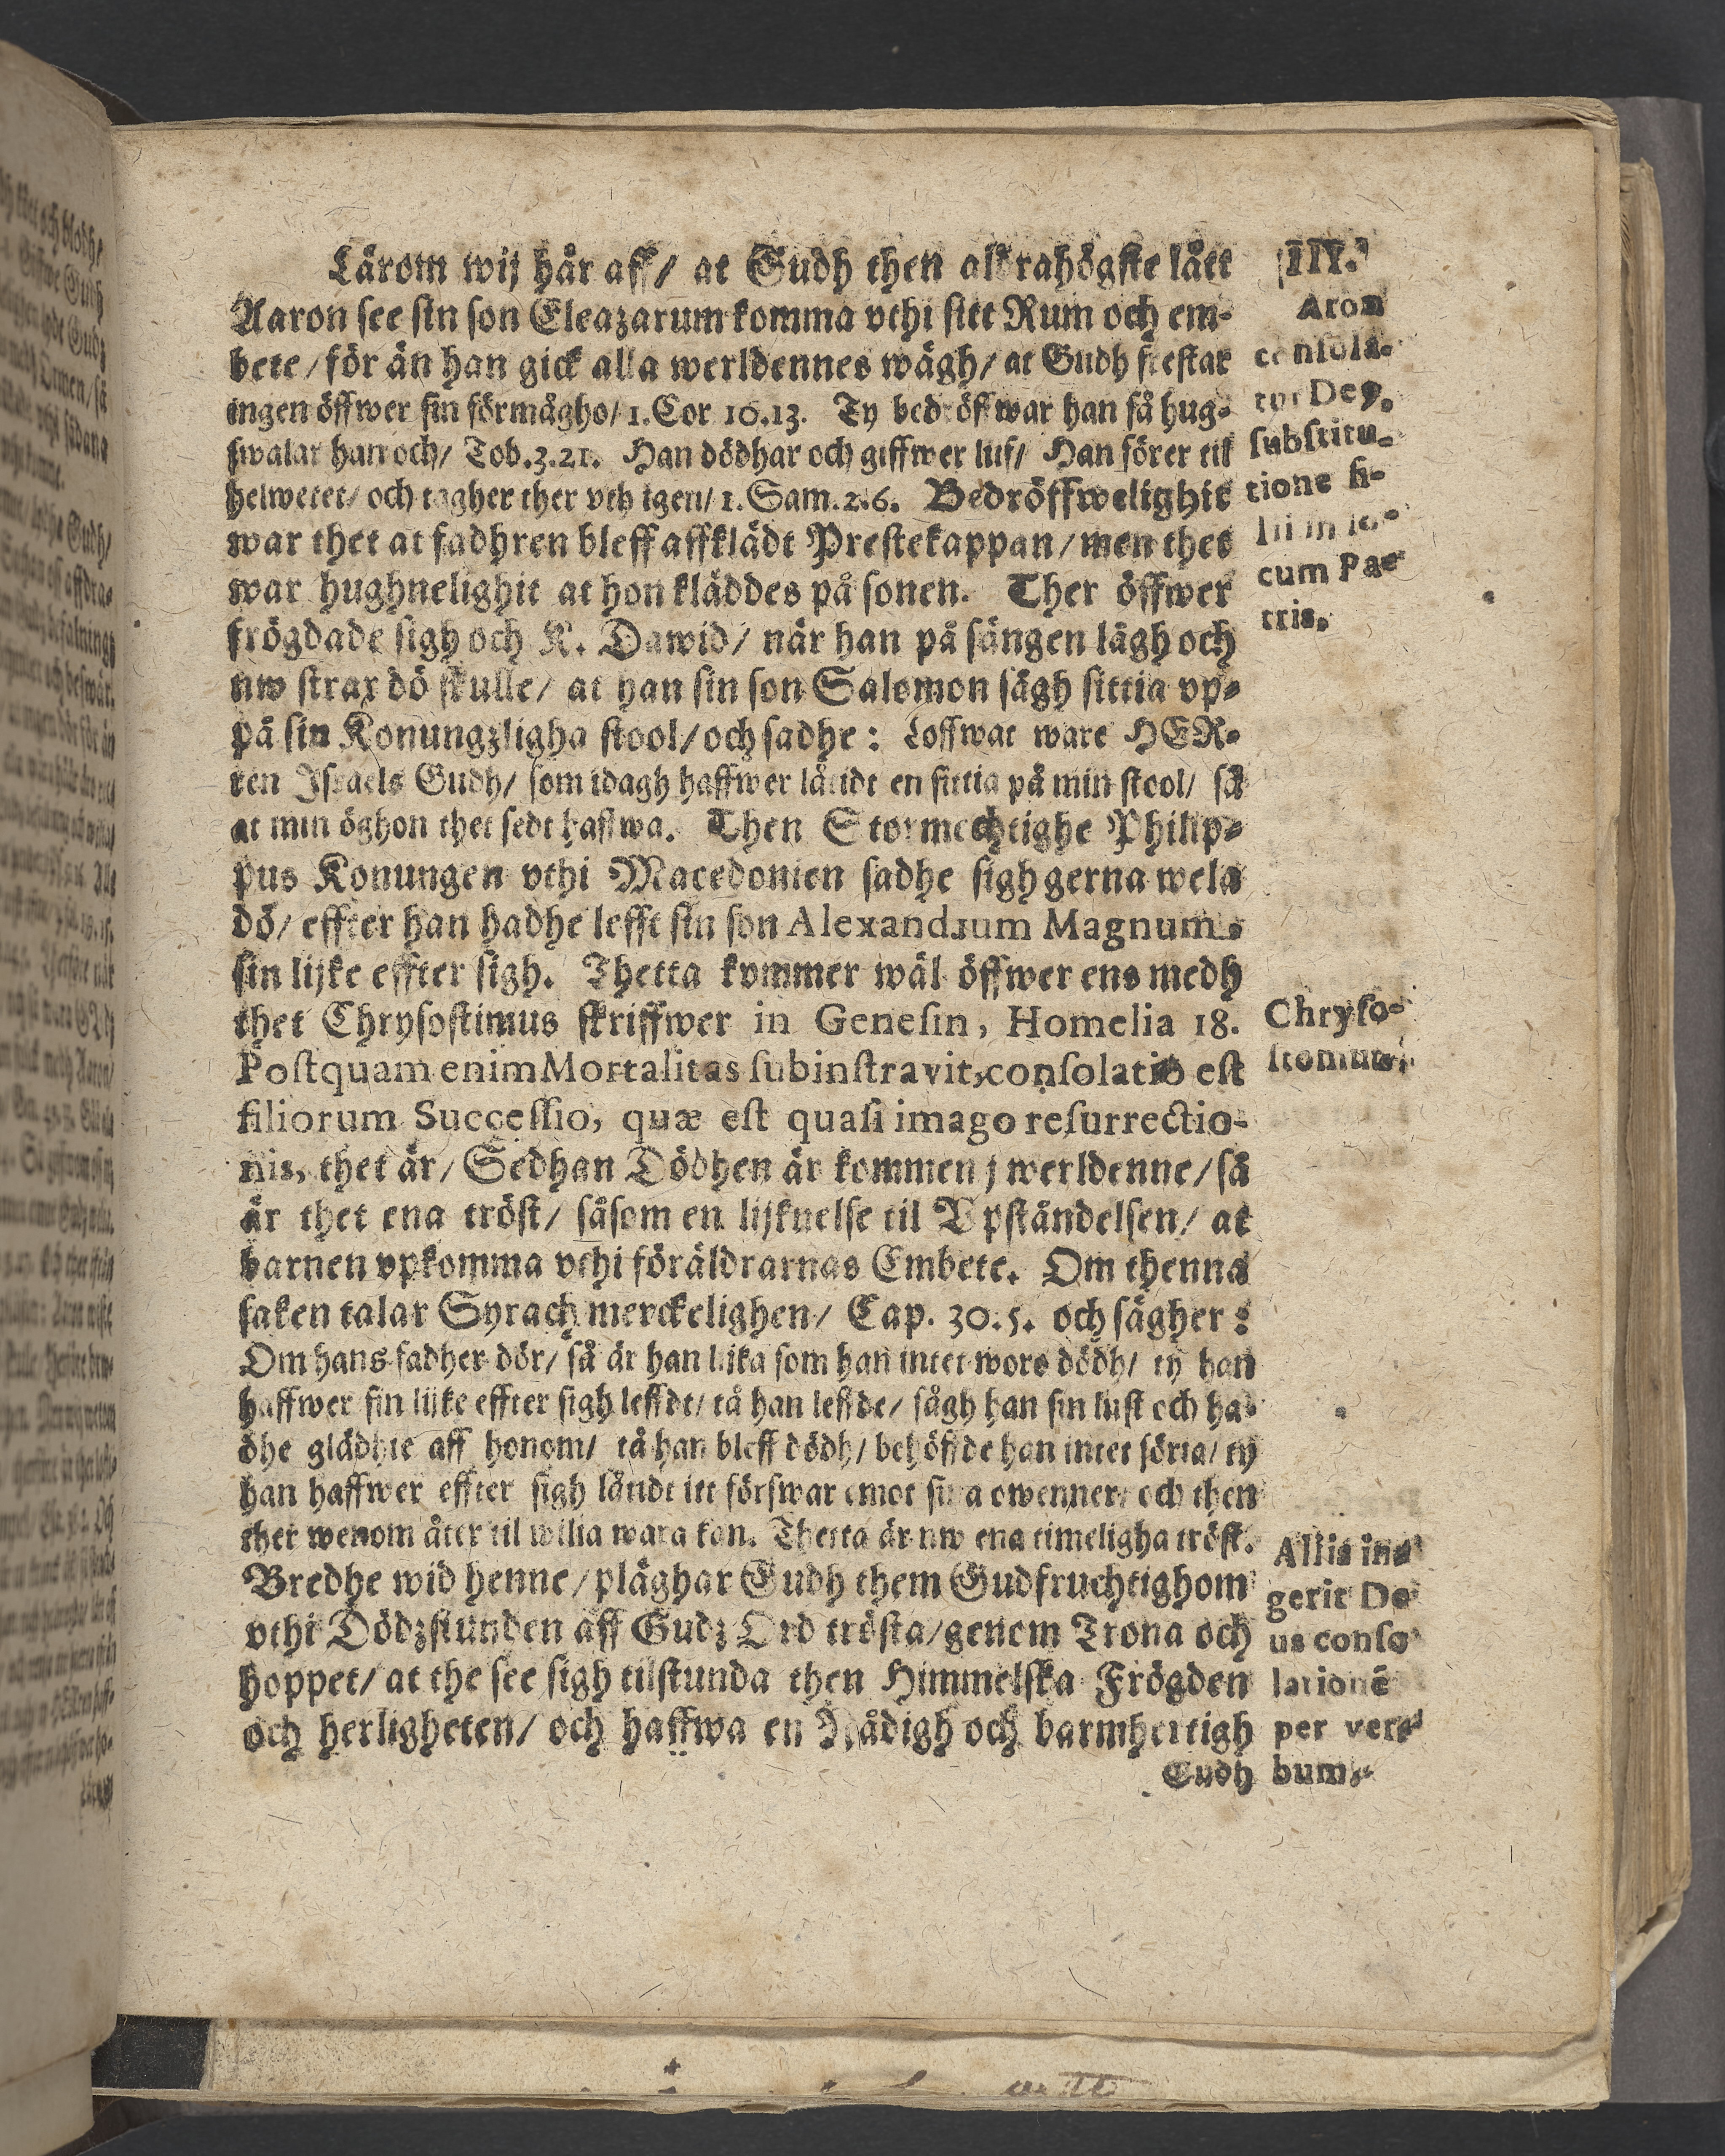 Lärom wij här aff/ at Gudh then aldrahögste lätt
Aaron see sin son Eleazarum komma vthi sitt Rum och em-
bete/ för än han gick alla werldennes wägh/ at Gudh frestar
ingen öffwer sin förmågho/ 1. Cor 10.13. Ty bedröffwar han så hug-
swalar han och/ Tob.3.21. Han dödhar och giffwer lijf/ Han förer til
helwetet/ och tagher ther vth igen/ 1. Sam.2.6. Bedröffwelighit
war thet at fadhren bleff affklädt Prestekappan/ men thes
war hughnelighit at hon kläddes på sonen. Ther öffwer
frögdade sigh och K. Dawid/ när han på sängen lågh och
nw strax dö skulle/ at han sin son Salomon sågh sittia vp-
på sin Konungzligha stool/ och sadhe: Loffwat ware HER-
ren Israels Gudh/ som idagh haffwer låtidt en sittia på min stool/ så
at min öghon thet sedt haffwa. Then Stormechtighe Philip-
pus Konungen vthi Macedonien sadhe sigh gerna wela
dö/ effter han hadhe lefft sin son Alexandrum Magnum
sin lijke effter sigh. Thetta kommer wäl öffwer ens medh
thet Chrysostimus skriffwer in Genesin, Homelia 18.
Postquam enim Mortalitas subinstravit, consolatio est
filiorum Successio, quæ est quasi imago resurrectio-
nis, thet är/ Sedhan Dödhen är kommen j werldenne/ så
är thet ena tröst/ såsom en lijknelse til Vpståndelsen/ at
barnen vpkomma vthi föräldrarnas Embete. Om thenna
saken talar Syrach merckelighen/ Cap. 30.5. och sägher:
Om hans fadher dör/ så är han lijka som han intet wore dödh/ ty han
haffwer sin lijke effter sigh leffdt/ tå han leffde/ sågh han sin lust och ha-
dhe glädhie aff honom/ tå han bleff dödh/ behöffde han intet söria/ ty
han haffwer effter sigh låtidt itt förswar emot sina owenner/ och then
ther wenom åter til wilia wara kan. Thetta är nw ena timeligha tröst.
Bredhe wid henne/ pläghar Gudh them Gudfruchtighom
vthi Dödzstunden aff Gudz Ord trösta/ genom Trona och
hoppet/ at the see sigh tilstunda then Himmelska Frögden
och herligheten/ och haffwa en Nådigh och barmhertigh
Gudh
III.
Aron
consola-
tur Deꝰ.
substitu-
tione fi-
lii in lo-
cum Pa-
tris.
Chryso-
stomus.
Aliis in-
gerit De
us conso
lationē
per ver-
bum.